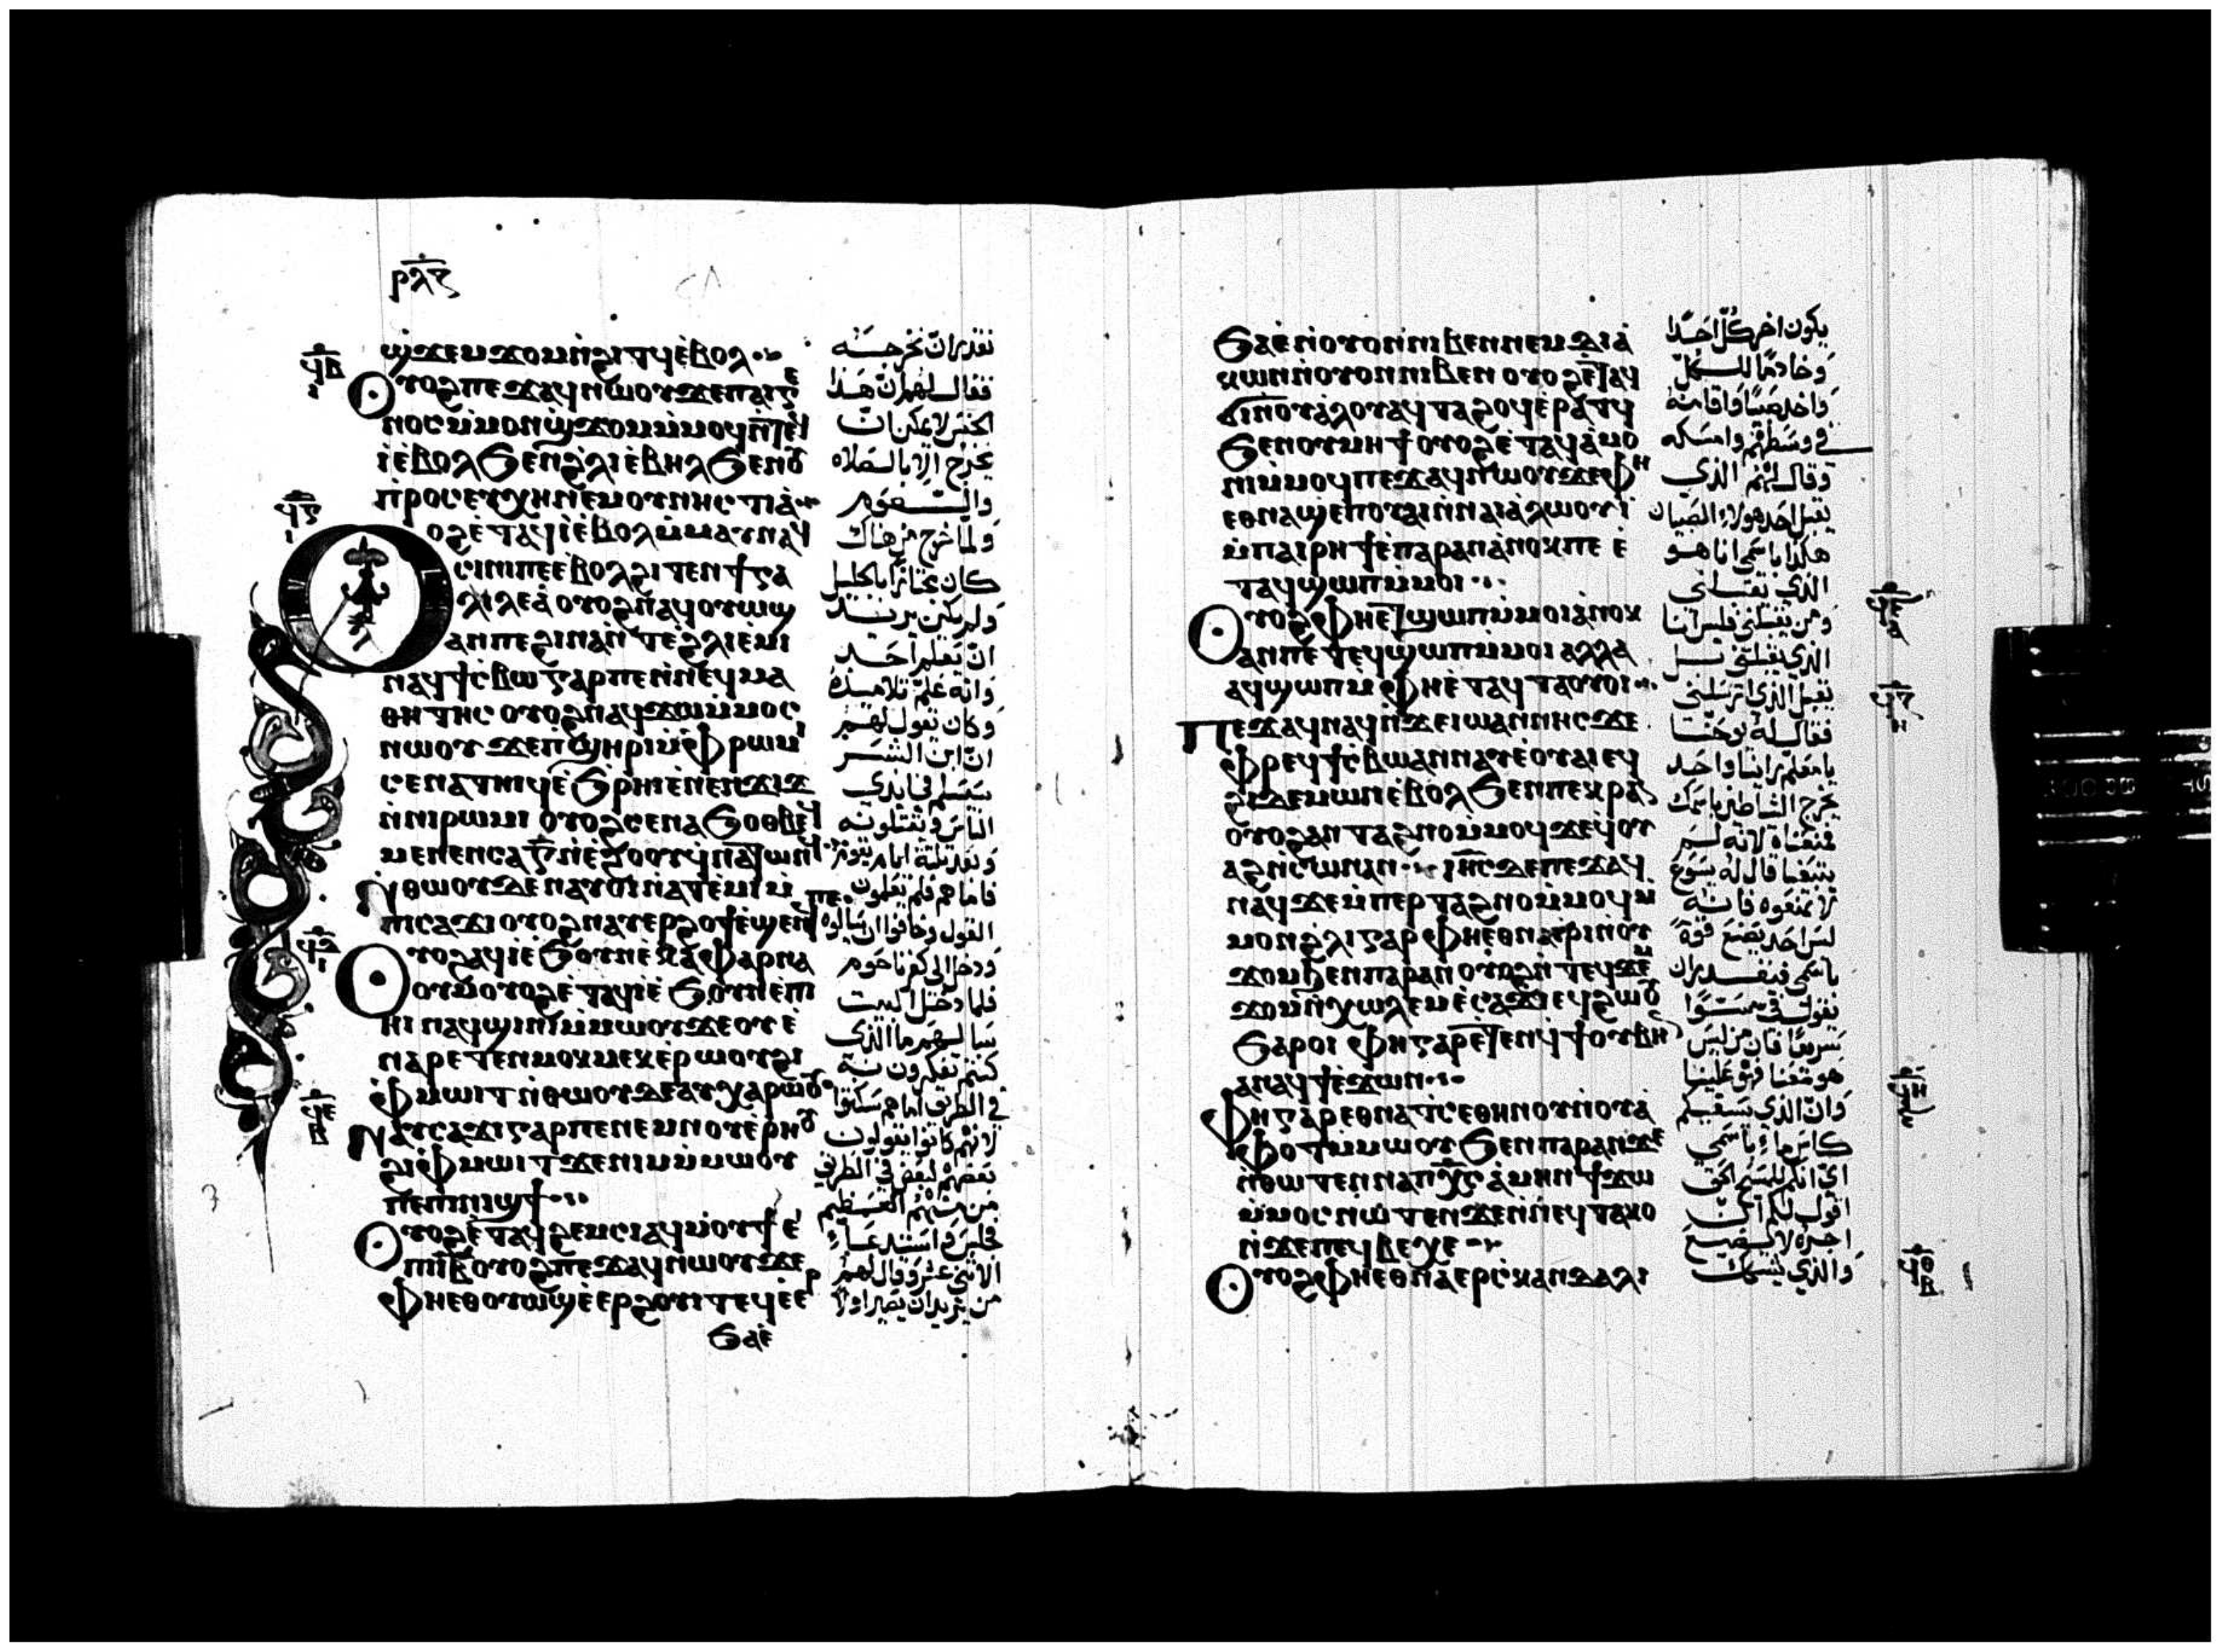 ⲣⲗⲋ
ϣϫⲉⲙϫⲟⲙⲛ̀ϩⲓⲧϥⲉ̀ⲃⲟⲗ
Ⲟⲩⲟϩⲡⲉϫⲁϥⲛⲱⲟⲩϫⲉⲡⲁⲓⲅⲉ
ⲛⲟⲥⲙ̀ⲙⲟⲛϣ̀ϫⲟⲙⲙ̀ⲙⲟϥⲛ̀ⲧⲉϥ
ⲓ̀ⲉ̀ⲃⲟⲗϧⲉⲛϩ̀ⲗⲓⲉ̀ⲃⲏⲗϧⲉⲛⲟⲩ
ⲡ̀ⲣⲟⲥⲉⲩⲭⲏⲛⲉⲙⲟⲩⲛⲏⲥⲧⲓⲁ̀
Ⲟⲩⲟϩⲉ̀ⲧⲁϥⲓ̀ⲉ̀ⲃⲟⲗⲙ̀ⲙⲁⲩⲛⲁϥ
ⲥⲓⲛⲓⲡⲉⲉ̀ⲃⲟⲗϩⲓⲧⲉⲛϯⲅⲁ
ⲗⲓⲗⲉⲁ̀ⲟⲩⲟϩⲛⲁϥⲟⲩⲱϣ
ⲁⲛⲡⲉϩⲓⲛⲁⲛ̀ⲧⲉϩ̀ⲗⲓⲉ̀ⲙⲓ
ⲛⲁϥϯⲥ̀ⲃⲱⲅⲁⲣⲡⲉⲛ̀ⲛⲉϥⲙⲁ
ⲑⲏⲧⲏⲥⲟⲩⲟϩⲛⲁϥϫⲱⲙ̀ⲙⲟⲥ
ⲛⲱⲟⲩϫⲉⲡ̀ϣⲏⲣⲓⲙ̀ⲫ̀ⲣⲱⲙⲓ
ⲥⲉⲛⲁⲧⲏⲓϥⲉ̀ϧ̀ⲣⲏⲓⲉ̀ⲛⲉⲛϫⲓϫ
ⲛ̀ⲛⲓⲣⲱⲙⲓⲟⲩⲟϩⲥⲉⲛⲁϧⲟⲑⲃⲉϥ
ⲙⲉⲛⲉⲛⲥⲁⲅ̅ⲛ̀ⲉ̀ϩⲟⲟⲩϥⲛⲁⲧⲱⲛϥ
Ⲛ̀ⲑⲱⲟⲩⲇⲉⲛⲁⲩⲟⲓⲛ̀ⲁⲧⲉ̀ⲙⲓⲙ̀
ⲡⲓⲥⲁϫⲓⲟⲩⲟϩⲛⲁⲩⲉⲣϩⲟϯⲉ̀ϣⲉⲛϥ ⲡⲉ
Ⲟⲩⲟϩⲁϥⲓ̀ⲉ̀ϧⲟⲩⲛⲉ̀ⲕⲁⲫⲁⲣⲛⲁ
ⲟⲩⲙⲟⲩⲟϩⲉ̀ⲧⲁϥⲓ̀ⲉ̀ϧⲟⲩⲛⲉ̀ⲡⲓ
ⲏⲓⲛⲁϥϣⲓⲛⲓⲙ̀ⲙⲱⲟⲩϫⲉⲟⲩⲉ̀
ⲛⲁⲣⲉⲧⲉⲛⲙⲟⲕⲙⲉⲕⲉ̀ⲣⲱⲟⲩϩⲓ
ⲫ̀ⲙⲱⲓⲧⲛ̀ⲑⲱⲟⲩⲇⲉⲁⲩⲭⲁⲣⲱⲟⲩ
Ⲛⲁⲩⲥⲁϫⲓⲅⲁⲣⲡⲉⲛⲉⲙⲛⲟⲩⲉ̀ⲣⲏⲟⲩ
ϩⲓⲫ̀ⲙⲱⲓⲧϫⲉⲛⲓⲙⲙ̀ⲙⲱⲟⲩ
ⲡⲉⲡⲓⲛⲓϣϯ
Ⲟⲩⲟϩⲉ̀ⲧⲁϥϩⲉⲙⲥⲓⲁϥⲙ̀ⲟⲩϯⲉ̀
ⲡⲓⲓ̅ⲃ̅ⲟⲩⲟϩⲡⲉϫⲁϥⲛⲱⲟⲩϫⲉ
ⲫⲏⲉⲑⲟⲩⲱϣⲉ̀ⲉⲣϩⲟⲩⲓⲧⲉϥⲉ̀ⲉⲣ
ϧⲁⲉ̀
نقدر ان نخرجه
فقال لهم ان هذا
الجنس لا يمكن ان
يخرج الا بالصلاه
والصوم
ولما خرج من هناك
كان مجتازا بالجليل
ولم يكن يريد
ان يعلم احد
وانه علم تلاميذه
وكان يقول لهم
ان ابن البشر
سيسلم في ايدي
الناس ويقتلونه
وبعد ثلثة ايام يقوم
فاما هم فلم يعلمون
القول وخافوا ان يسالوه
ودخل الى كفرناحوم
فلما دخل البيت
سالهم ما الذي
كنتم تفكرون فيه
في الطريق اما هم سكتوا
لانهم كانوا يقولون
بعضهم لبعض في الطريق
من منهم العظيم
فجلس واستدعا
الاثني عشر وقال لهم
من يريد ان يصير اولا
ϧⲁⲉ̀ⲛ̀ⲟⲩⲟⲛⲛⲓⲃⲉⲛⲛⲉⲙⲇⲓⲁ̀
ⲕⲱⲛⲛ̀ⲟⲩⲟⲛⲛⲓⲃⲉⲛⲟⲩⲟϩⲉ̀ⲧⲁϥ
ϭⲓⲛ̀ⲟⲩⲁ̀ⲗⲟⲩⲁϥⲧⲁϩⲟϥⲉ̀ⲣⲁⲧϥ
ϧⲉⲛⲟⲩⲙⲏϯⲟⲩⲟϩⲉ̀ⲧⲁϥⲁ̀ⲙⲟ
ⲛⲓⲙ̀ⲙⲟϥⲡⲉϫⲁϥⲛⲱⲟⲩϫⲉⲫⲏ
ⲉⲑⲛⲁϣⲉⲡⲟⲩⲁⲓⲛ̀ⲛⲁⲓⲁ̀ⲗⲱⲟⲩⲓ̀
ⲙ̀ⲡⲁⲓⲣⲏϯⲉ̀ⲡⲁⲣⲁⲛⲁ̀ⲛⲟⲕⲡⲉⲉ̀
ⲧⲁϥϣⲱⲡⲙ̀ⲙⲟⲓ
Ⲟⲩⲟϩⲫⲏⲉⲧϣⲱⲡⲙ̀ⲙⲟⲓⲁ̀ⲛⲟⲕ
ⲁⲛⲡⲉⲧⲉϥϣⲱⲡⲙ̀ⲙⲟⲓⲁⲗⲗⲁ
ⲁϥϣⲱⲡⲙ̀ⲫⲏⲉ̀ⲧⲁϥⲧⲁⲟⲩⲟⲓ
Ⲡⲉϫⲁϥⲛⲁϥⲛ̀ϫⲉⲓⲱⲁⲛⲛⲏⲥϫⲉ
ⲫ̀ⲣⲉϥϯⲥ̀ⲃⲱⲁⲛⲛⲁⲩⲉ̀ⲟⲩⲁⲓⲉϥ
ϩⲓⲇⲉⲙⲱⲛⲉ̀ⲃⲟⲗϧⲉⲛⲡⲉⲕⲣⲁⲛ
ⲟⲩⲟϩⲁⲛⲧⲁϩⲛⲟⲙ̀ⲙⲟϥϫⲉϥⲟⲩ
ⲁϩⲛ̀ⲥⲱⲛⲁⲛ ⲓⲏ̅ⲥ̅ⲇⲉⲡⲉϫⲁϥ
ⲛⲁϥϫⲉⲙ̀ⲡⲉⲣⲧⲁϩⲛⲟⲙ̀ⲙⲟϥⲙ̀
ⲙⲟⲛϩⲗⲓⲅⲁⲣⲫⲏⲉⲑⲛⲁⲉ̀ⲣⲓⲛ̀ⲟⲩ
ϫⲟⲙϧⲉⲛⲡⲁⲣⲁⲛⲟⲩⲟϩⲛ̀ⲧⲉϥϫⲉⲙ
ϫⲟⲙⲛ̀ⲭⲱⲗⲉⲙⲉ̀ⲥⲁϫⲓⲉϥϩⲱⲟⲩ
ϧⲁⲣⲟⲓ ⲫⲏⲅⲁⲣⲉ̀ⲧⲉⲛϥϯⲟⲩⲃⲏ
ⲁⲛⲁϥϯⲉ̀ϫⲱⲛ
Ⲫⲏⲅⲁⲣⲉⲑⲛⲁⲧⲥⲉⲑⲏⲛⲟⲩⲛ̀ⲟⲩⲁ̀
ⲫⲟⲧⲙ̀ⲙⲱⲟⲩϧⲉⲛⲡⲁⲣⲁⲛϫⲉ
ⲛ̀ⲑⲱⲧⲉⲛⲛⲁⲡⲭ̅ⲥ̅ⲁ̀ⲙⲏⲛϯϫⲱ
ⲙ̀ⲙⲟⲥⲛⲱⲧⲉⲛϫⲉⲛ̀ⲛⲉϥⲧⲁⲕⲟ
ⲛ̀ϫⲉⲡⲉϥⲃⲉⲭⲉ
Ⲟⲩⲟϩⲫⲏⲉⲑⲛⲁⲉⲣⲥ̀ⲕⲁⲛⲇⲁⲗⲓ
يكون اخر كل احدا
وخادما للكل
واخذ صبيا واقامه
في وسطهم وامسكه
وقال لهم الذي
يقبل احد هولاء الصبيان
هكذا باسمي انا هو
الذي يقبلني
ومن يقبلني فليس انا
الذي يقبلني بل
يقبل الذي ارسلني
فقال له يوحنا
يا معلم راينا واحد
يخرج الشياطين باسمك
فمنعناه لانه لم
يتبعنا قال له يسوع
لا تمنعوه فانه
ليس احد يصنع قوة
باسمي فيقدر ان
يقول في سوا
سريعا فان من ليس
هو معنا فهو علينا
وان الذي يسقيكم
كاس ماء باسمي
اي انكم للمسيح الحق
اقول لكم ان
اجره لا يضيع
والذي يشكك